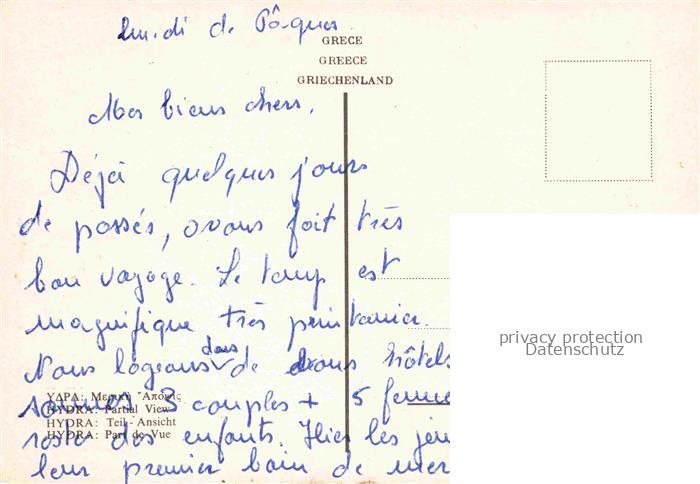 Lundi de Pâques
GRECE
GREECE
GRIECHENLAND
Mes biens chers,
Déjà quelques jours
de passés, avons fait très
bon voyage. Le temp est
magnifique très printanier.
Nous logeons dans de bons hôtels
sommes 3 couples + 5 femmes
reste des enfants. Hier les jeu
leur premier bain de mer
ΥΔΡΑ: Μερική Ἄποψις
HYDRA: Partial View
HYDRA: Teil-Ansicht
HYDRA: Part de Vue
privacy protection
Datenschutz